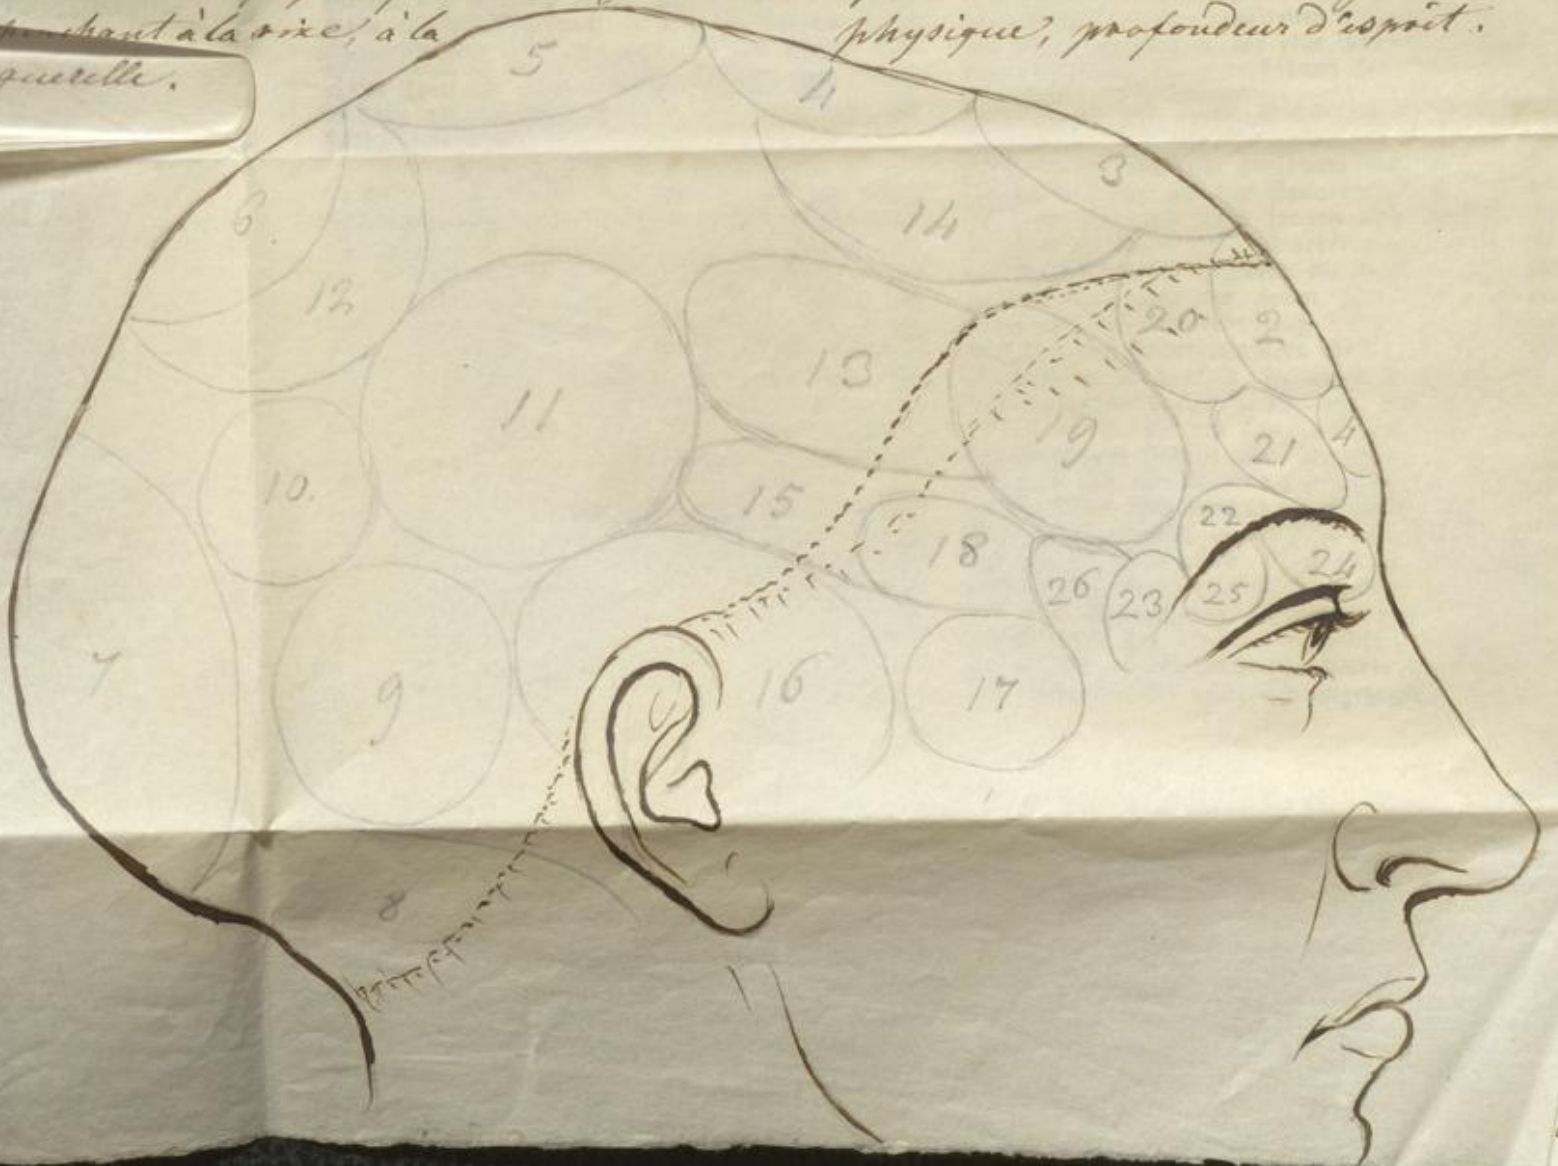 penchant à la rixe, à la
querelle.
physique, profondeur d'esprit.
5
4
3
6
14
12
20
2
13
11
19
21
4
10.
15
22
18
24
26
23
25
7
9
16
17
8